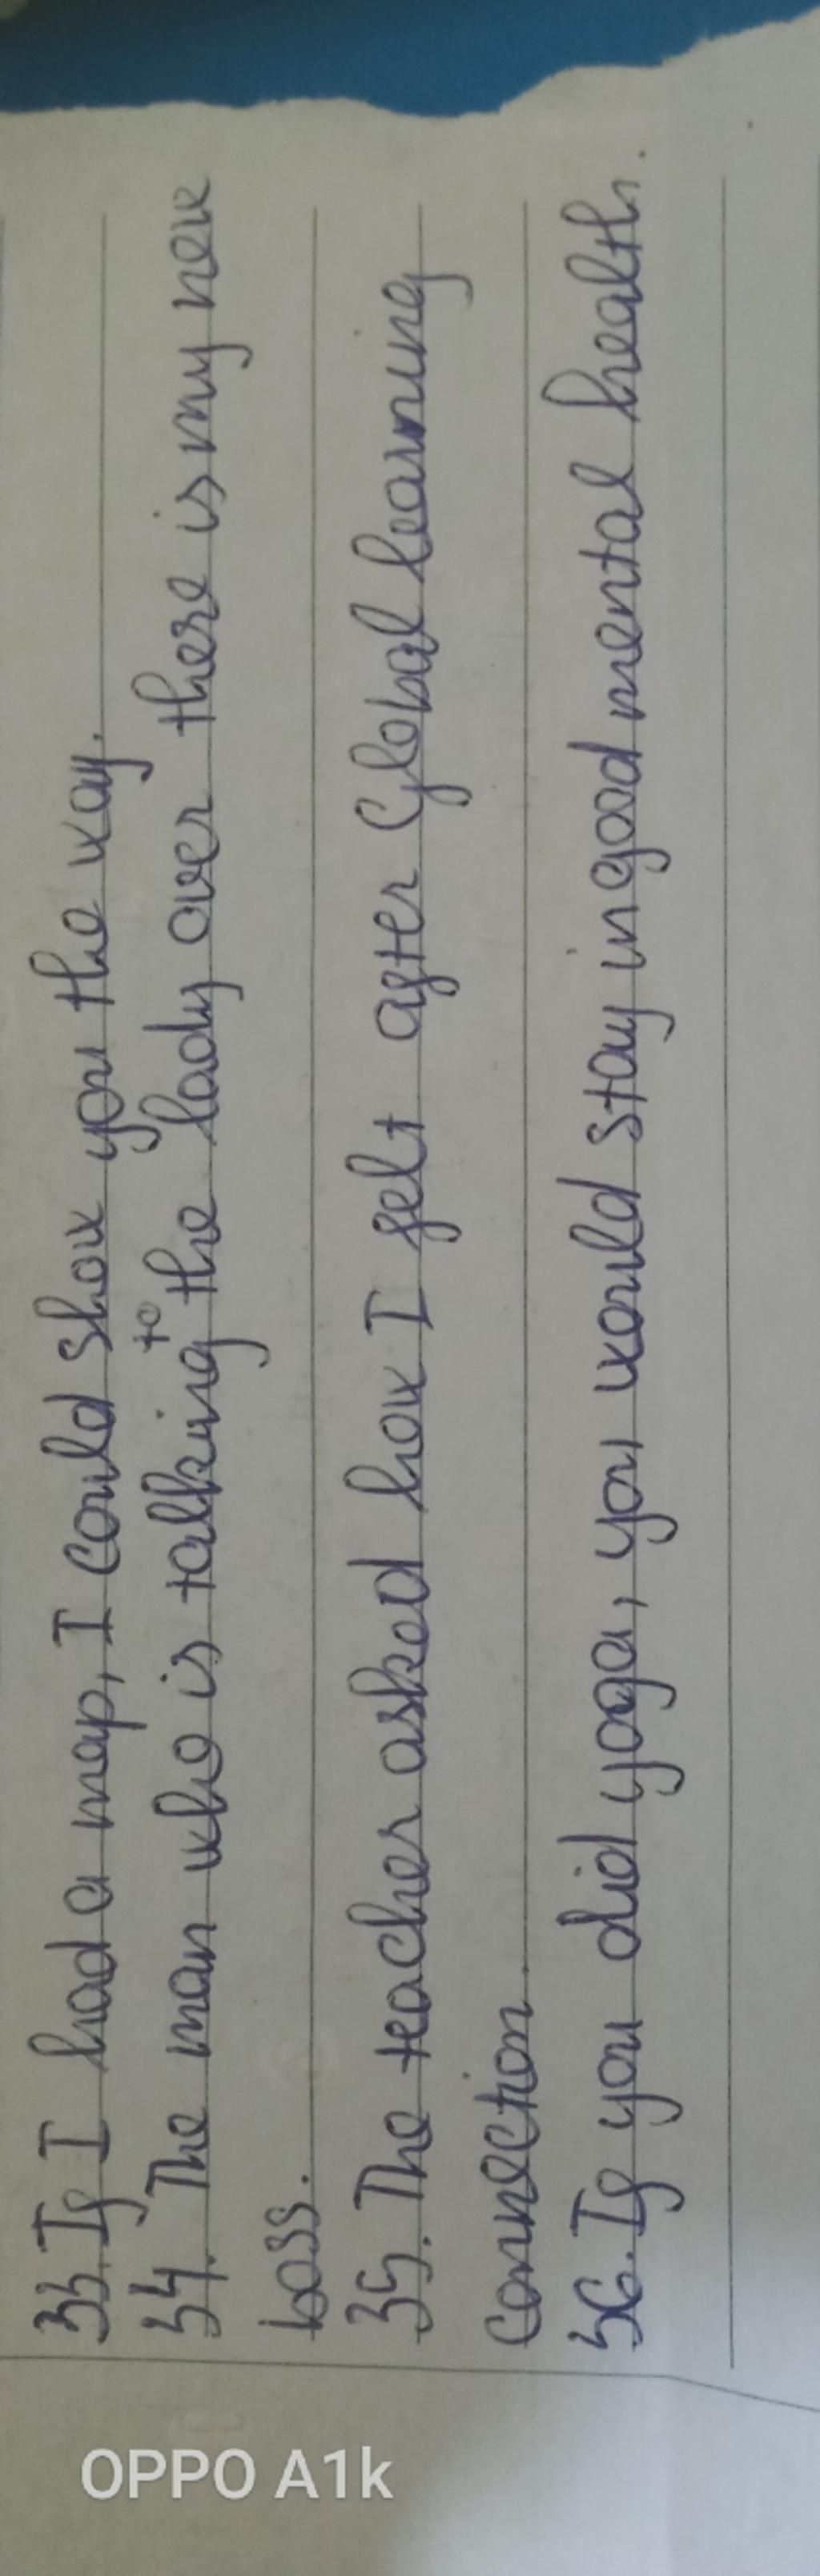 33. If I had a map, I could show you the way.
34. The man who is talking to the lady over there is my new
boss.
35. The teacher asked how I felt after Global learning
connection.
36. If you did yoga, you would stay in good mental health.
OPPO A1k